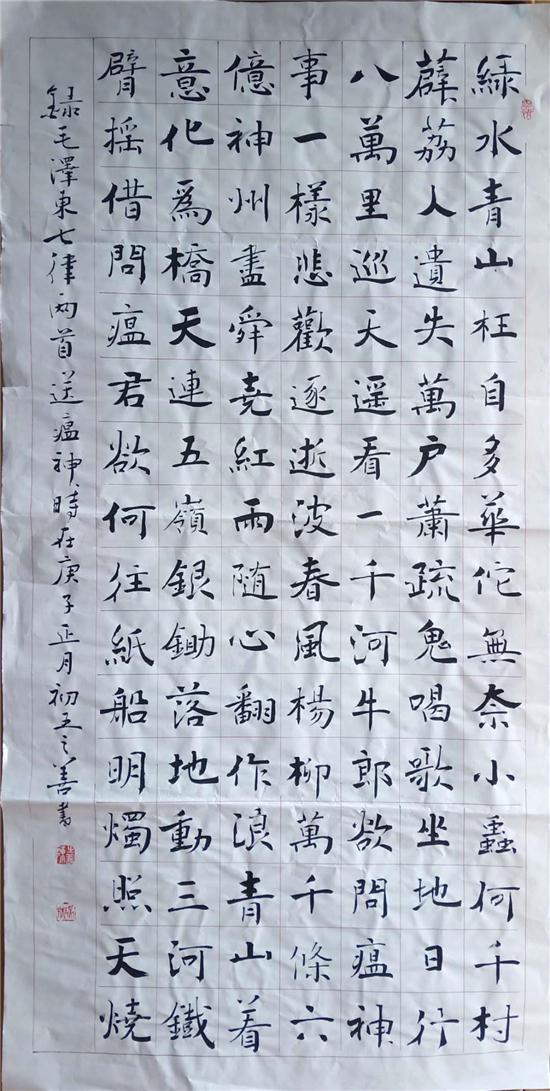 緑水青山枉自多華佗無奈小蟲何千村
薜荔人遺失萬户蕭疏鬼喝歌坐地日行
八萬里巡天遥看一千河牛郎欲問瘟神
事一樣悲歡逐逝波春風楊柳萬千條六
億神州盡舜堯紅雨随心翻作浪青山着
意化爲橋天連五嶺銀鋤落地動三河鐵
臂摇借問瘟君欲何往紙船明燭照天燒
録毛澤東七律兩首送瘟神時在庚子正月初五之善書